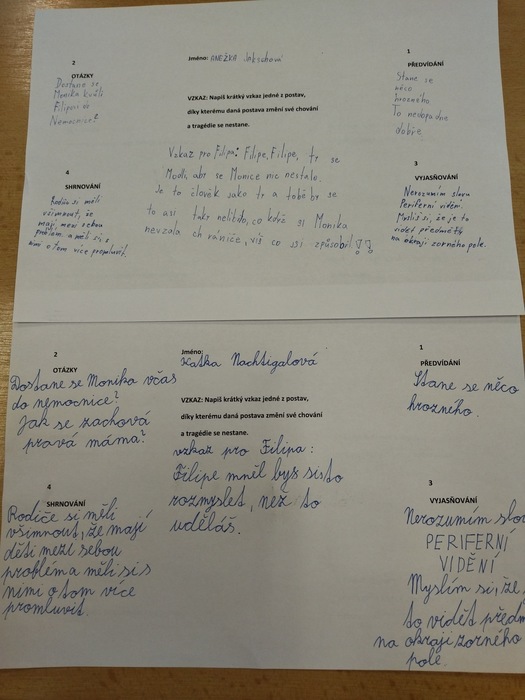 2
OTÁZKY
Dostane se
Monika kvůli
Filipovi do
Nemocnice?
Jméno: ANEŽKA Jakschová
VZKAZ: Napiš krátký vzkaz jedné z postav,
díky kterému daná postava změní své chování
a tragédie se nestane.
1
PŘEDVÍDÁNÍ
Stane se
něco
hrozného
To nedopadne
dobře.
4
SHRNOVÁNÍ
Rodiče si měli
všimnout, že
mají mezi sebou
problém a měli si s
nimi o tom více promluvit.
Vzkaz pro Filipa: Filipe, Filipe, ty se
Modli, aby se Monice nic nestalo.
Je to člověk jako ty a tobě by se
to asi taky nelíbilo, co když si Monika
nevzala chrániče, víš co jsi způsobil!?
3
VYJASŇOVÁNÍ
Nerozumím slovu
Periferní vidění.
Myslím si, že je to
vidět předměty
na okraji zorného pole.
2
OTÁZKY
Dostane se Monika včas
do nemocnice?
Jak se zachová
pravá máma?
Jméno:
Katka Nachtigalová
VZKAZ: Napiš krátký vzkaz jedné z postav,
díky kterému daná postava změní své chování
a tragédie se nestane.
vzkaz pro Filipa:
Filipe mněl bys si to
rozmyslet, než to
uděláš.
1
PŘEDVÍDÁNÍ
Stane se něco
hrozného.
4
SHRNOVÁNÍ
Rodiče si měli
všimnout, že mají
děti mezi sebou
problém a měli si s
nimi o tom více
promluvit.
3
VYJASŇOVÁNÍ
Nerozumím slov
PERIFERNÍ
VIDĚNÍ
Myslím si, že
to vidět předm
na okraji zorného
pole.